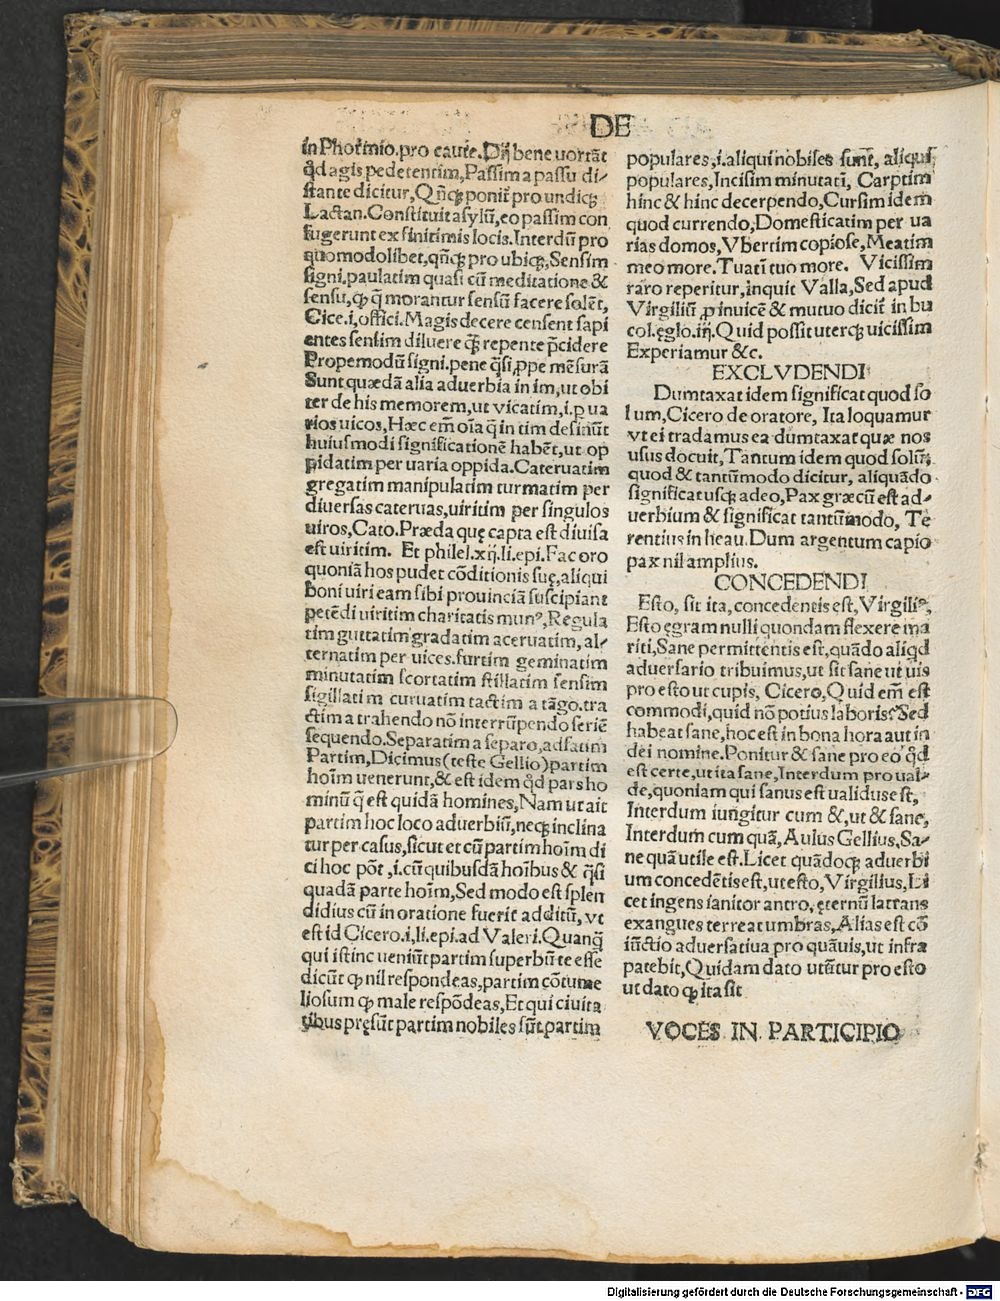 DE
in Phormio.pro caute.Dij bene uortāt
qd agis pedetentim,Passim a passu di-
stante dicitur,Qñq; ponit pro undiq;
Lactan.Constituit asylū,eo passim con
fugerunt ex finitimis locis.Interdū pro
quomodolibet,qñq; pro ubiq;,Sensim
signi.paulatim quasi cū meditatione &
sensu,ꝙ q̄ morantur sensū facere solēt,
Cice.i,offici.Magis decere censent sapi
entes sensim diluere q̄ȝ repente p̄cidere
Propemodū signi.pene q̄si,ꝓpe mēsurā
Sunt quædā alia aduerbia in im,ut obi
ter de his memorem,ut vicatim,i.ꝑ ua
rios uicos,Hæc em̄ oīa q̄ in tim desinūt
huiusmodi significationē habēt,ut op
pidatim per uaria oppida.Cateruatim
gregatim manipulatim turmatim per
diuersas cateruas,uiritim per singulos
uiros,Cato.Præda quę capta est diuisa
est uiritim. Et philel.xij.li.epi.Fac oro
quoniā hos pudet cōditionis suę,aliqui
boni uiri eam sibi prouinciā suscipiant
petēdi uiritim charitatis munꝰ,Regula
tim guttatim gradatim aceruatim, al-
ternatim per uices.furtim geminatim
minutatim scortatim stillatim sensim
sigillatim curuatim tactim a tāgo.tra
ctim a trahendo nō interrūpendo seriē
sequendo.Separatim a separo,adfatim
Partim,Dicimus(teste Gellio)partim
hoīm uenerunt,& est idem qd pars ho
minū q̄ est quidā homines,Nam ut ait
partim hoc loco aduerbiū,neq; inclina
tur per casus,sicut et cū partim hoīm di
ci hoc pōt ,i.cū quibusdā hoībus & q̄si
quadā parte hoīm,Sed modo est splen
didius cū in oratione fuerit additū, vt
est id Cicero.i,li.epi.ad Valeri.Quanq̄
qui istinc ueniūt partim superbū te esse
dicūt ꝙ nil respondeas,partim cōtume
liosum ꝙ male respōdeas,Et qui ciuita
tibus pręsūt partim nobiles sūt partim
populares,i.aliqui nobiles sunt, aliqui
populares,Incisim minutatī, Carptim
hinc & hinc decerpendo,Cursim idem
quod currendo,Domesticatim per ua
rias domos,Vbertim copiose,Meatim
meo more.Tuatī tuo more. Vicissim
raro reperitur,inquit Valla,Sed apud
Virgiliū ,ꝓ inuicē & mutuo dicit in bu
col.ęglo.iij.Quid possit uterq; uicissim
Experiamur &c.
EXCLVDENDI
Dumtaxat idem significat quod so
lum,Cicero de oratore, Ita loquamur
vt ei tradamus ea dumtaxat quæ nos
usus docuit,Tantum idem quod solū,
quod & tantūmodo dicitur, aliquādo
significat usq; adeo,Pax græcū est ad-
uerbium & significat tantūmodo, Te
rentius in heau.Dum argentum capio
pax nil amplius.
CONCEDENDI
Esto, sit ita, concedentis est,Virgiliꝰ,
Esto ęgram nulli quondam flexere ma
riti,Sane permittentis est,quādo aliqd
aduersario tribuimus,ut sit sane ut uis
pro esto ut cupis, Cicero,Quid em̄ est
commodi,quid nō potius laboris?Sed
habeat sane,hoc est in bona hora aut in
dei nomine.Ponitur & sane pro eo qd
est certe,ut ita sane,Interdum pro ual-
de,quoniam qui sanus est ualidus est,
Interdum iungitur cum &,ut & sane,
Interdum cum quā,Aulus Gellius,Sa-
ne quā utile est.Licet quādoq; aduerbi
um concedētis est,ut esto,Virgilius,Li
cet ingens ianitor antro,ęternū latrans
exangues terreat umbras,Alias est cō
iūctio aduersatiua pro quāuis,ut infra
patebit,Quidam dato utētur pro esto
ut dato ꝙ ita sit
VOCES IN PARTICIPIO
Digitalisierung gefördert durch die Deutsche Forschungsgemeinschaft - DFG